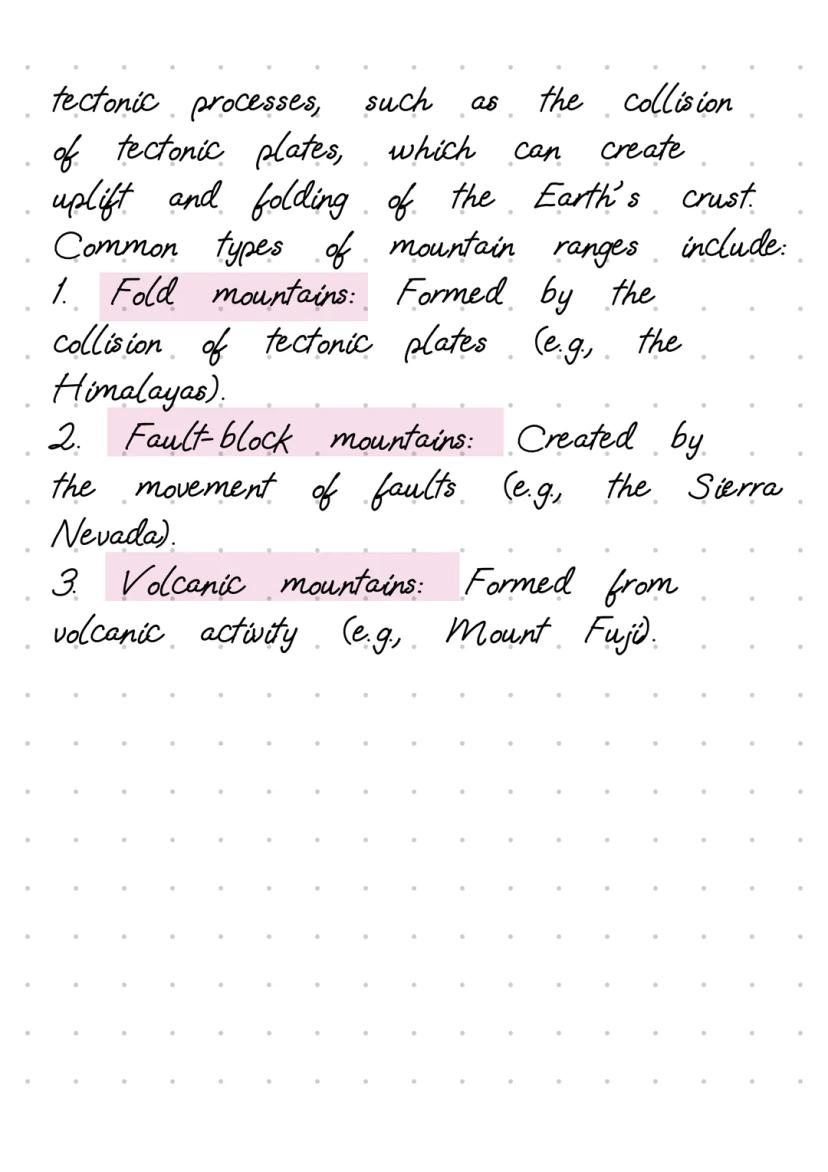 tectonic processes, such as the collision
of tectonic plates, which can create
uplift and folding of the Earth's crust.
Common types of mountain ranges include:
1. Fold mountains: Formed by the
collision of tectonic plates (e.g., the
Himalayas).
2. Fault-block mountains: Created by
the movement of faults (e.g., the Sierra
Nevada).
3. Volcanic mountains: Formed from
volcanic activity (e.g., Mount Fuji).